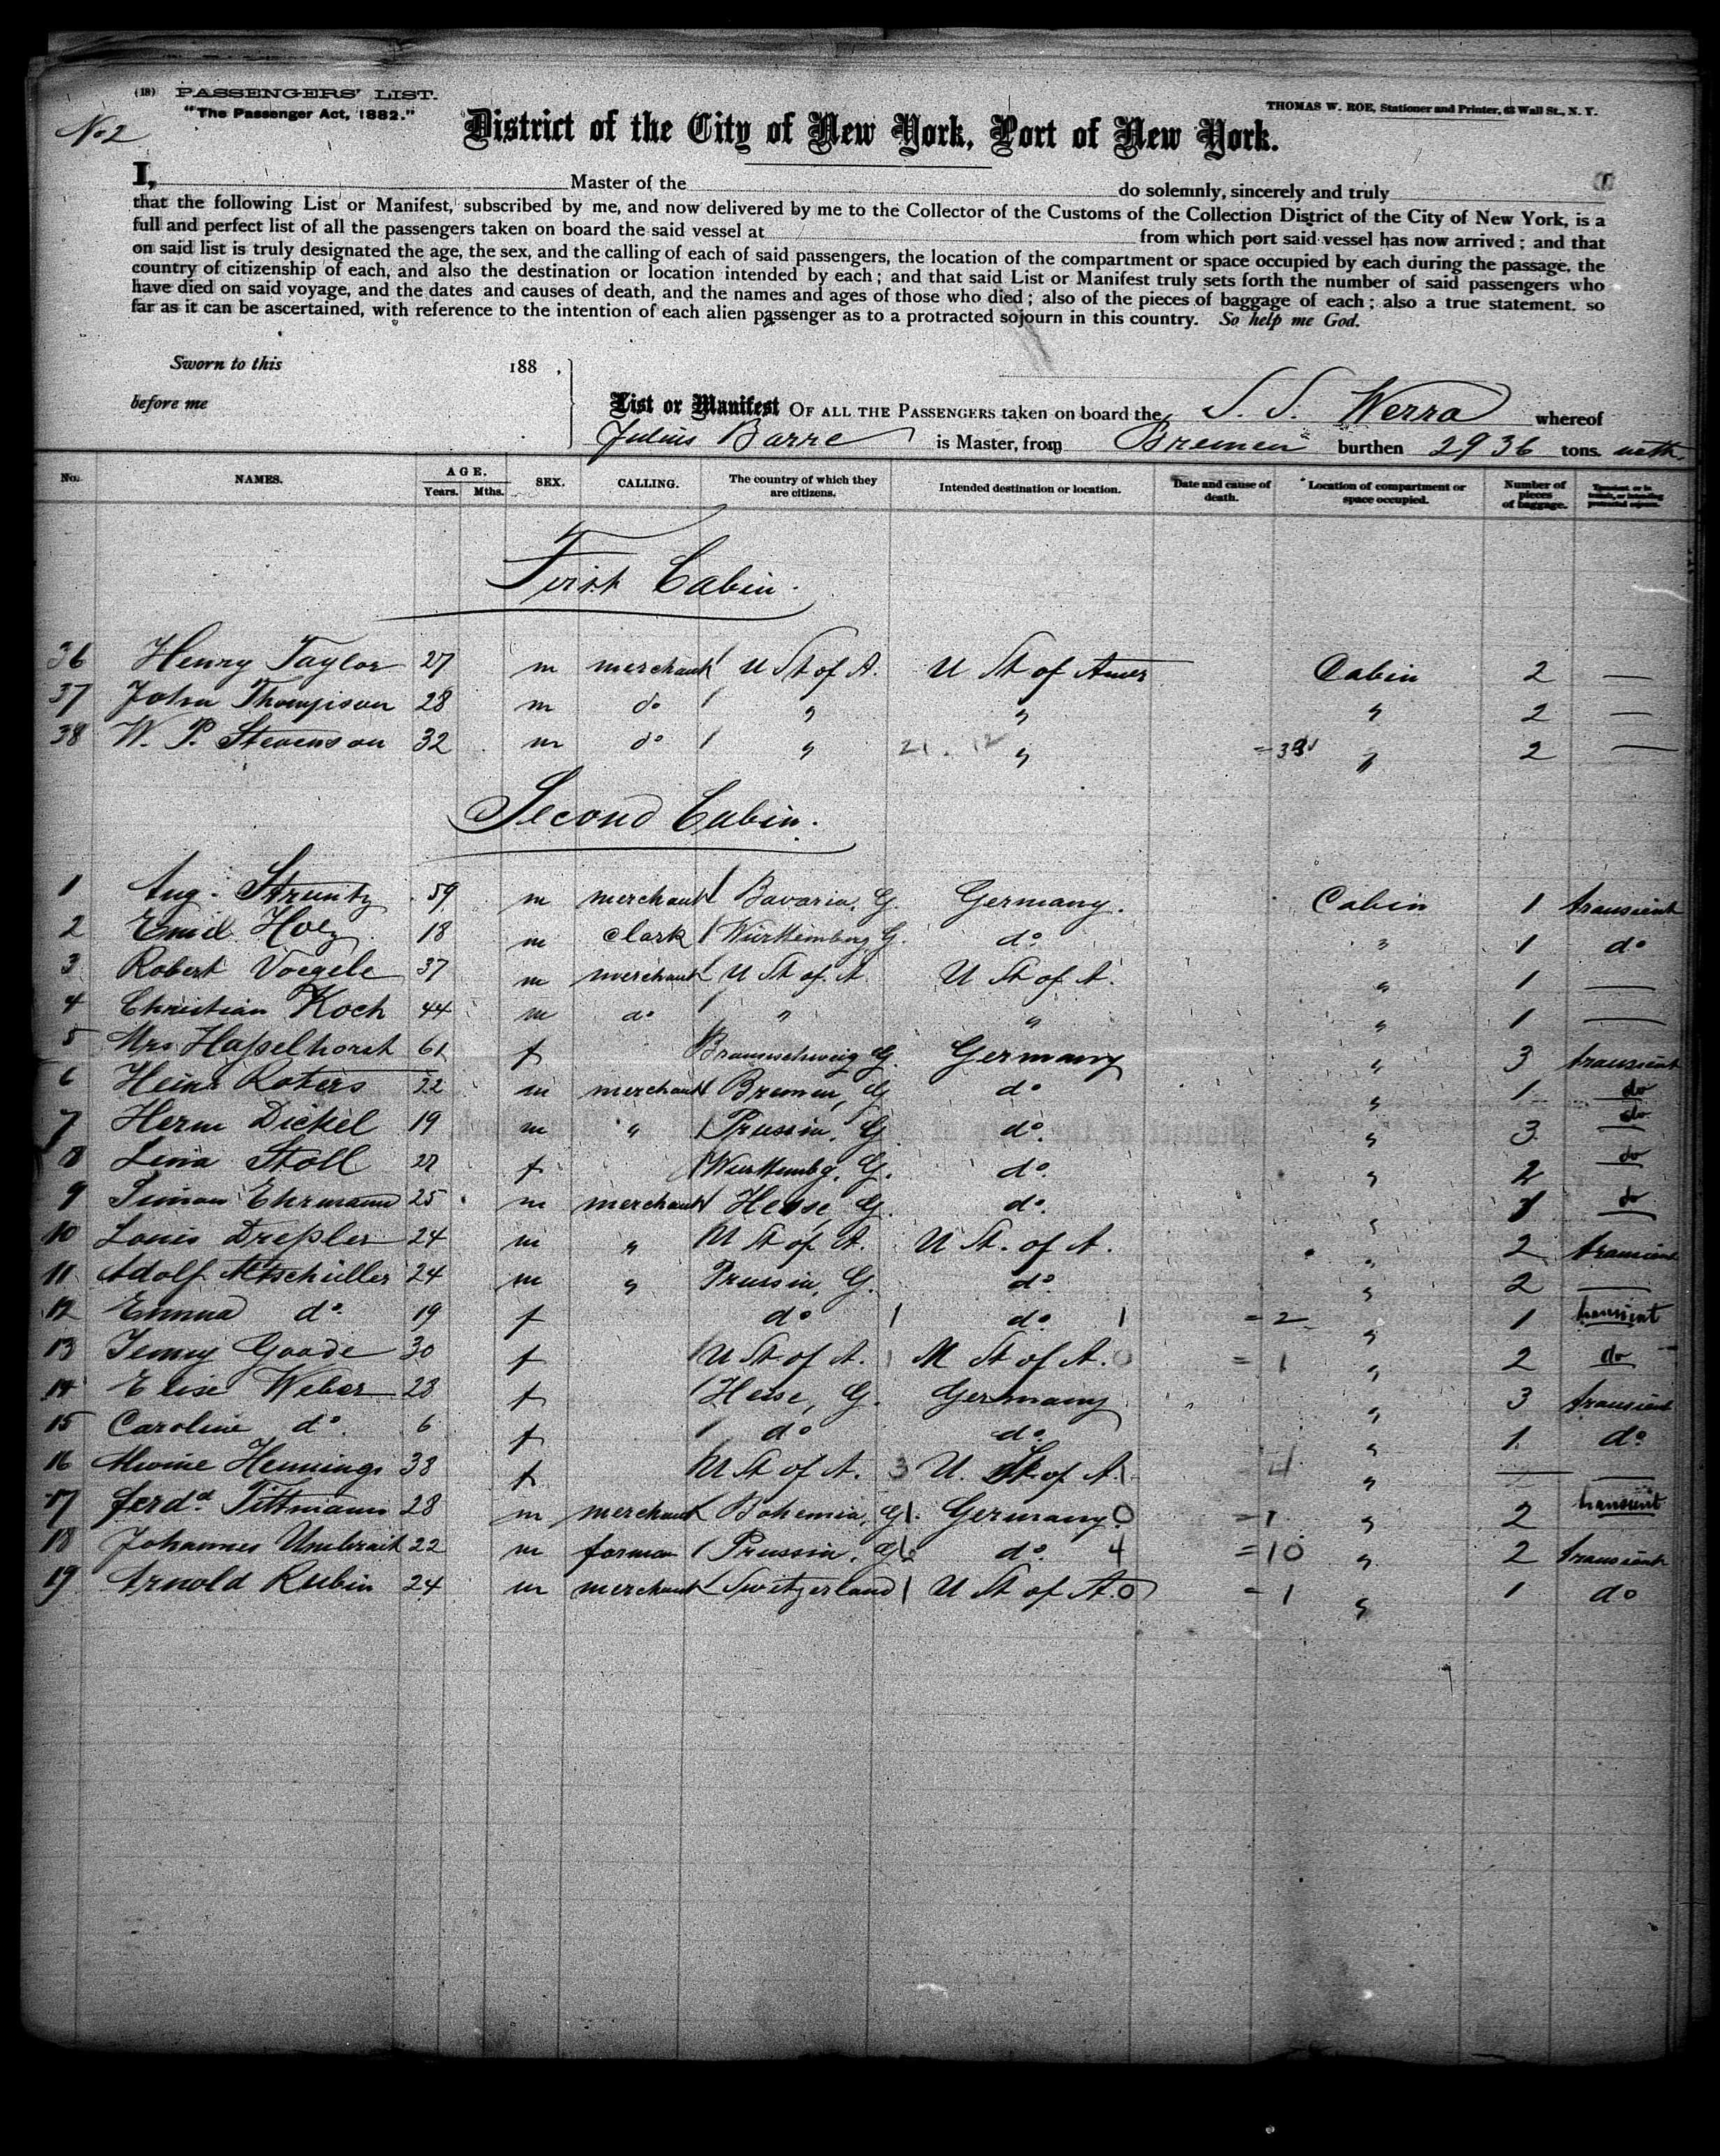 (18) PASSENGERS' LIST.
"The Passenger Act, 1882."
THOMAS W. ROE, Stationer and Printer, 63 Wall St., N. Y.
No 2
District of the City of New York, Port of New York.
I, Master of the do solemnly, sincerely and truly
that the following List or Manifest, subscribed by me, and now delivered by me to the Collector of the Customs of the Collection District of the City of New York, is a
full and perfect list of all the passengers taken on board the said vessel at from which port said vessel has now arrived; and that
on said list is truly designated the age, the sex, and the calling of each of said passengers, the location of the compartment or space occupied by each during the passage, the
country of citizenship of each, and also the destination or location intended by each; and that said List or Manifest truly sets forth the number of said passengers who
have died on said voyage, and the dates and causes of death, and the names and ages of those who died; also of the pieces of baggage of each; also a true statement, so
far as it can be ascertained, with reference to the intention of each alien passenger as to a protracted sojourn in this country. So help me God.
Sworn to this 188 ,
before me
List or Manifest OF ALL THE PASSENGERS taken on board the S. S. Werra whereof
Julius Barre is Master, from Bremen burthen 2936 tons. netto
No. NAMES. AGE. Years. Mths. SEX. CALLING. The country of which they are citizens. Intended destination or location. Date and cause of death. Location of compartment or space occupied. Number of pieces of baggage. Transient or in transit, or intending protracted sojourn.
First Cabin.
36 Henry Taylor 27 m merchant U St of A. U St of Amer Cabin 2 —
37 John Thompson 28 m do " " " 2 —
38 W. P. Stevenson 32 m do " 21. 12 " " 2 —
Second Cabin.
1 Aug. Struntz 59 m merchant Bavaria, G. Germany. Cabin 1 transient
2 Emil Holz 18 m clark Württemberg G. do. " 1 do
3 Robert Voegele 37 m merchant U St of A. U St of A. " 1 —
4 Christian Koch 44 m do " " " 1 —
5 Mrs Haßelhorst 61 f Braunschweig G. Germany " 3 transient
6 Heinr Roters 32 m merchant Bremen, G do " 1 do
7 Herm Dickel 19 m " Prussia, G. do. " 3 do
8 Lina Stoll 27 f Württembg. G. do. " 2 do
9 Simon Ehrmann 25 m merchant Hesse, G. do. " 1 do
10 Louis Dreßler 24 m " U St of A. U St. of A. " 2 transient
11 Adolf Altschüller 24 m " Prussia, G. do. " 2 —
12 Emma do. 19 f do 1 do. 1 = 2 " 1 transient
13 Jenny Goode 30 f U St of A. 1 U St of A. 0 = 1 " 2 do
14 Elise Weber 28 f Hesse, G. Germany " 3 transient
15 Caroline do. 6 f do do. " 1 do
16 Alwine Hennings 38 f U St of A. 3 U. St of A. 1 = 4 " — —
17 Ferdd. Tittmann 28 m merchant Bohemia, G 1. Germany. 0 = 1 " 2 transient
18 Johannes Umbrait 22 m farmer Prussia, G 6 do. 4 = 10 " 2 transient
19 Arnold Rubin 24 m merchant Switzerland 1 U St of A. 0 = 1 " 1 do